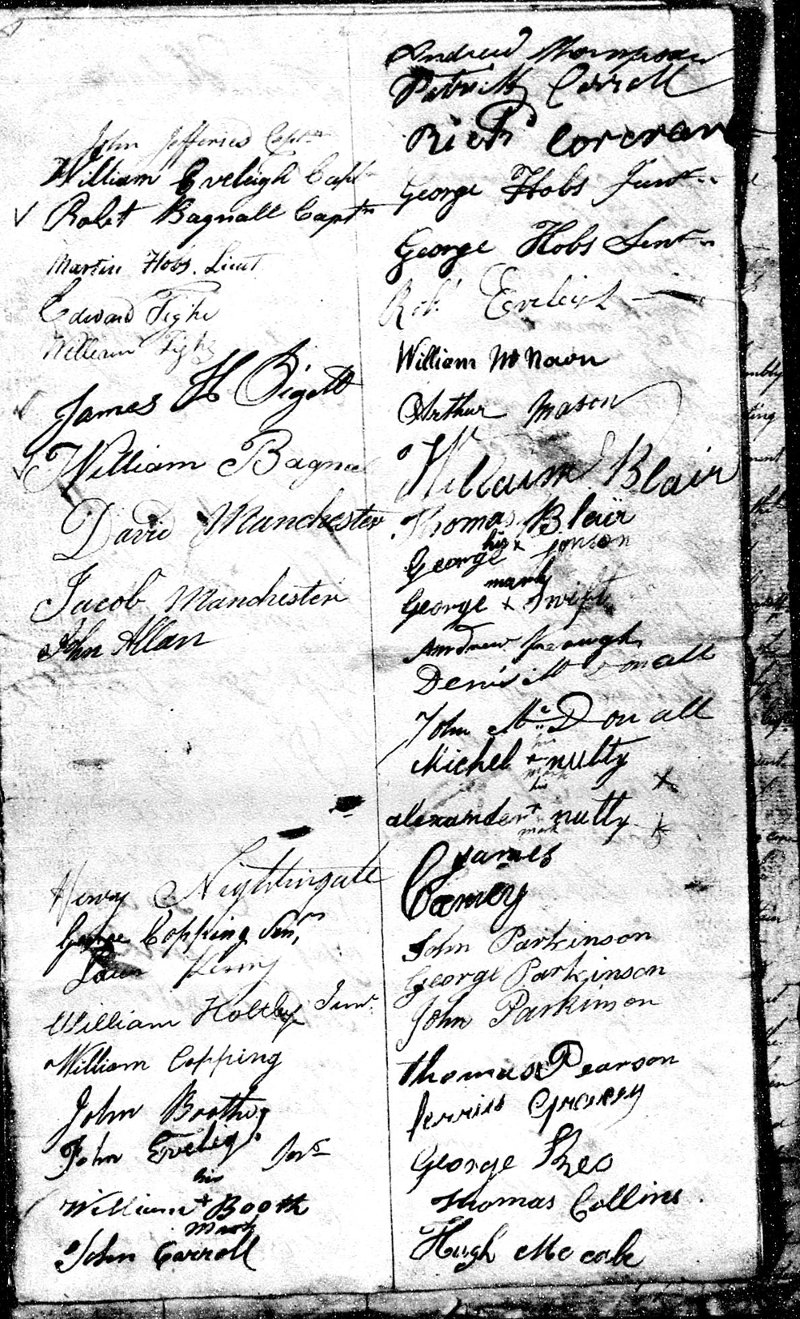 John Jefferies Captn
William Eveleigh Captn
Robt Bagnall Captn
Martin Hobs. Lieut
Edward Tighe
William Tighe
James H Pigott
William Bagnall
David Manchester
Jacob Manchester
John Allan
Henry Nightingale
George Copping Senr
Henry
William Holtby Junr
William Copping
John Booth
John Eveleigh Junr
his
William + Booth
mark
John Carroll
Andrew Thompson
Patrick Carroll
Richd Corcran
George Hobs Junr
George Hobs Senr
Robt Eveleigh
William McNavn
Arthur Mason
William Blair
Thomas Blair
George
his x
mark
George + Swift
Andrew
Denis Mc Donall
John Mc Donall
his
Michel + nulty
mark
his
alexander + nulty
mark
James
Carney
John Parkinson
George Parkinson
John Parkinson
Thomas Pearson
George Theo
Thomas Collins
Hugh Mc cabe